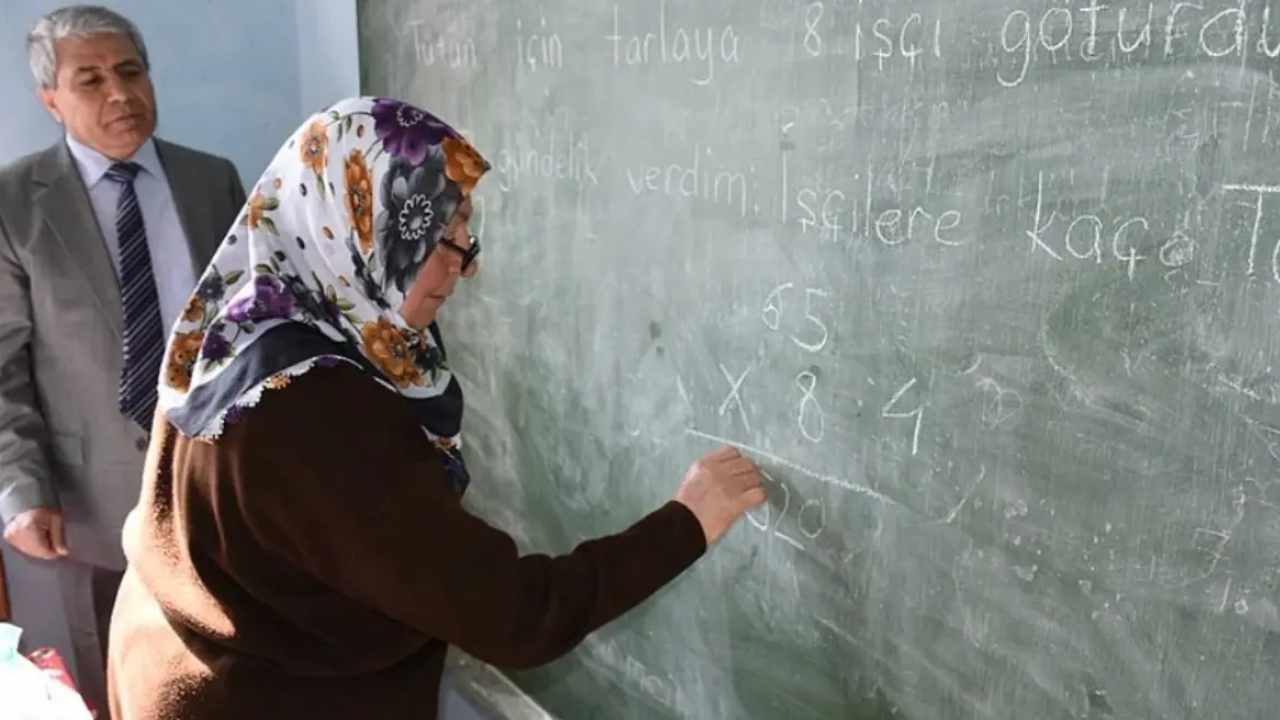 Tütün için tarlaya 8 işçi götürdü
gündelik verdim. İşçilere kaç
65
X 8 4
20